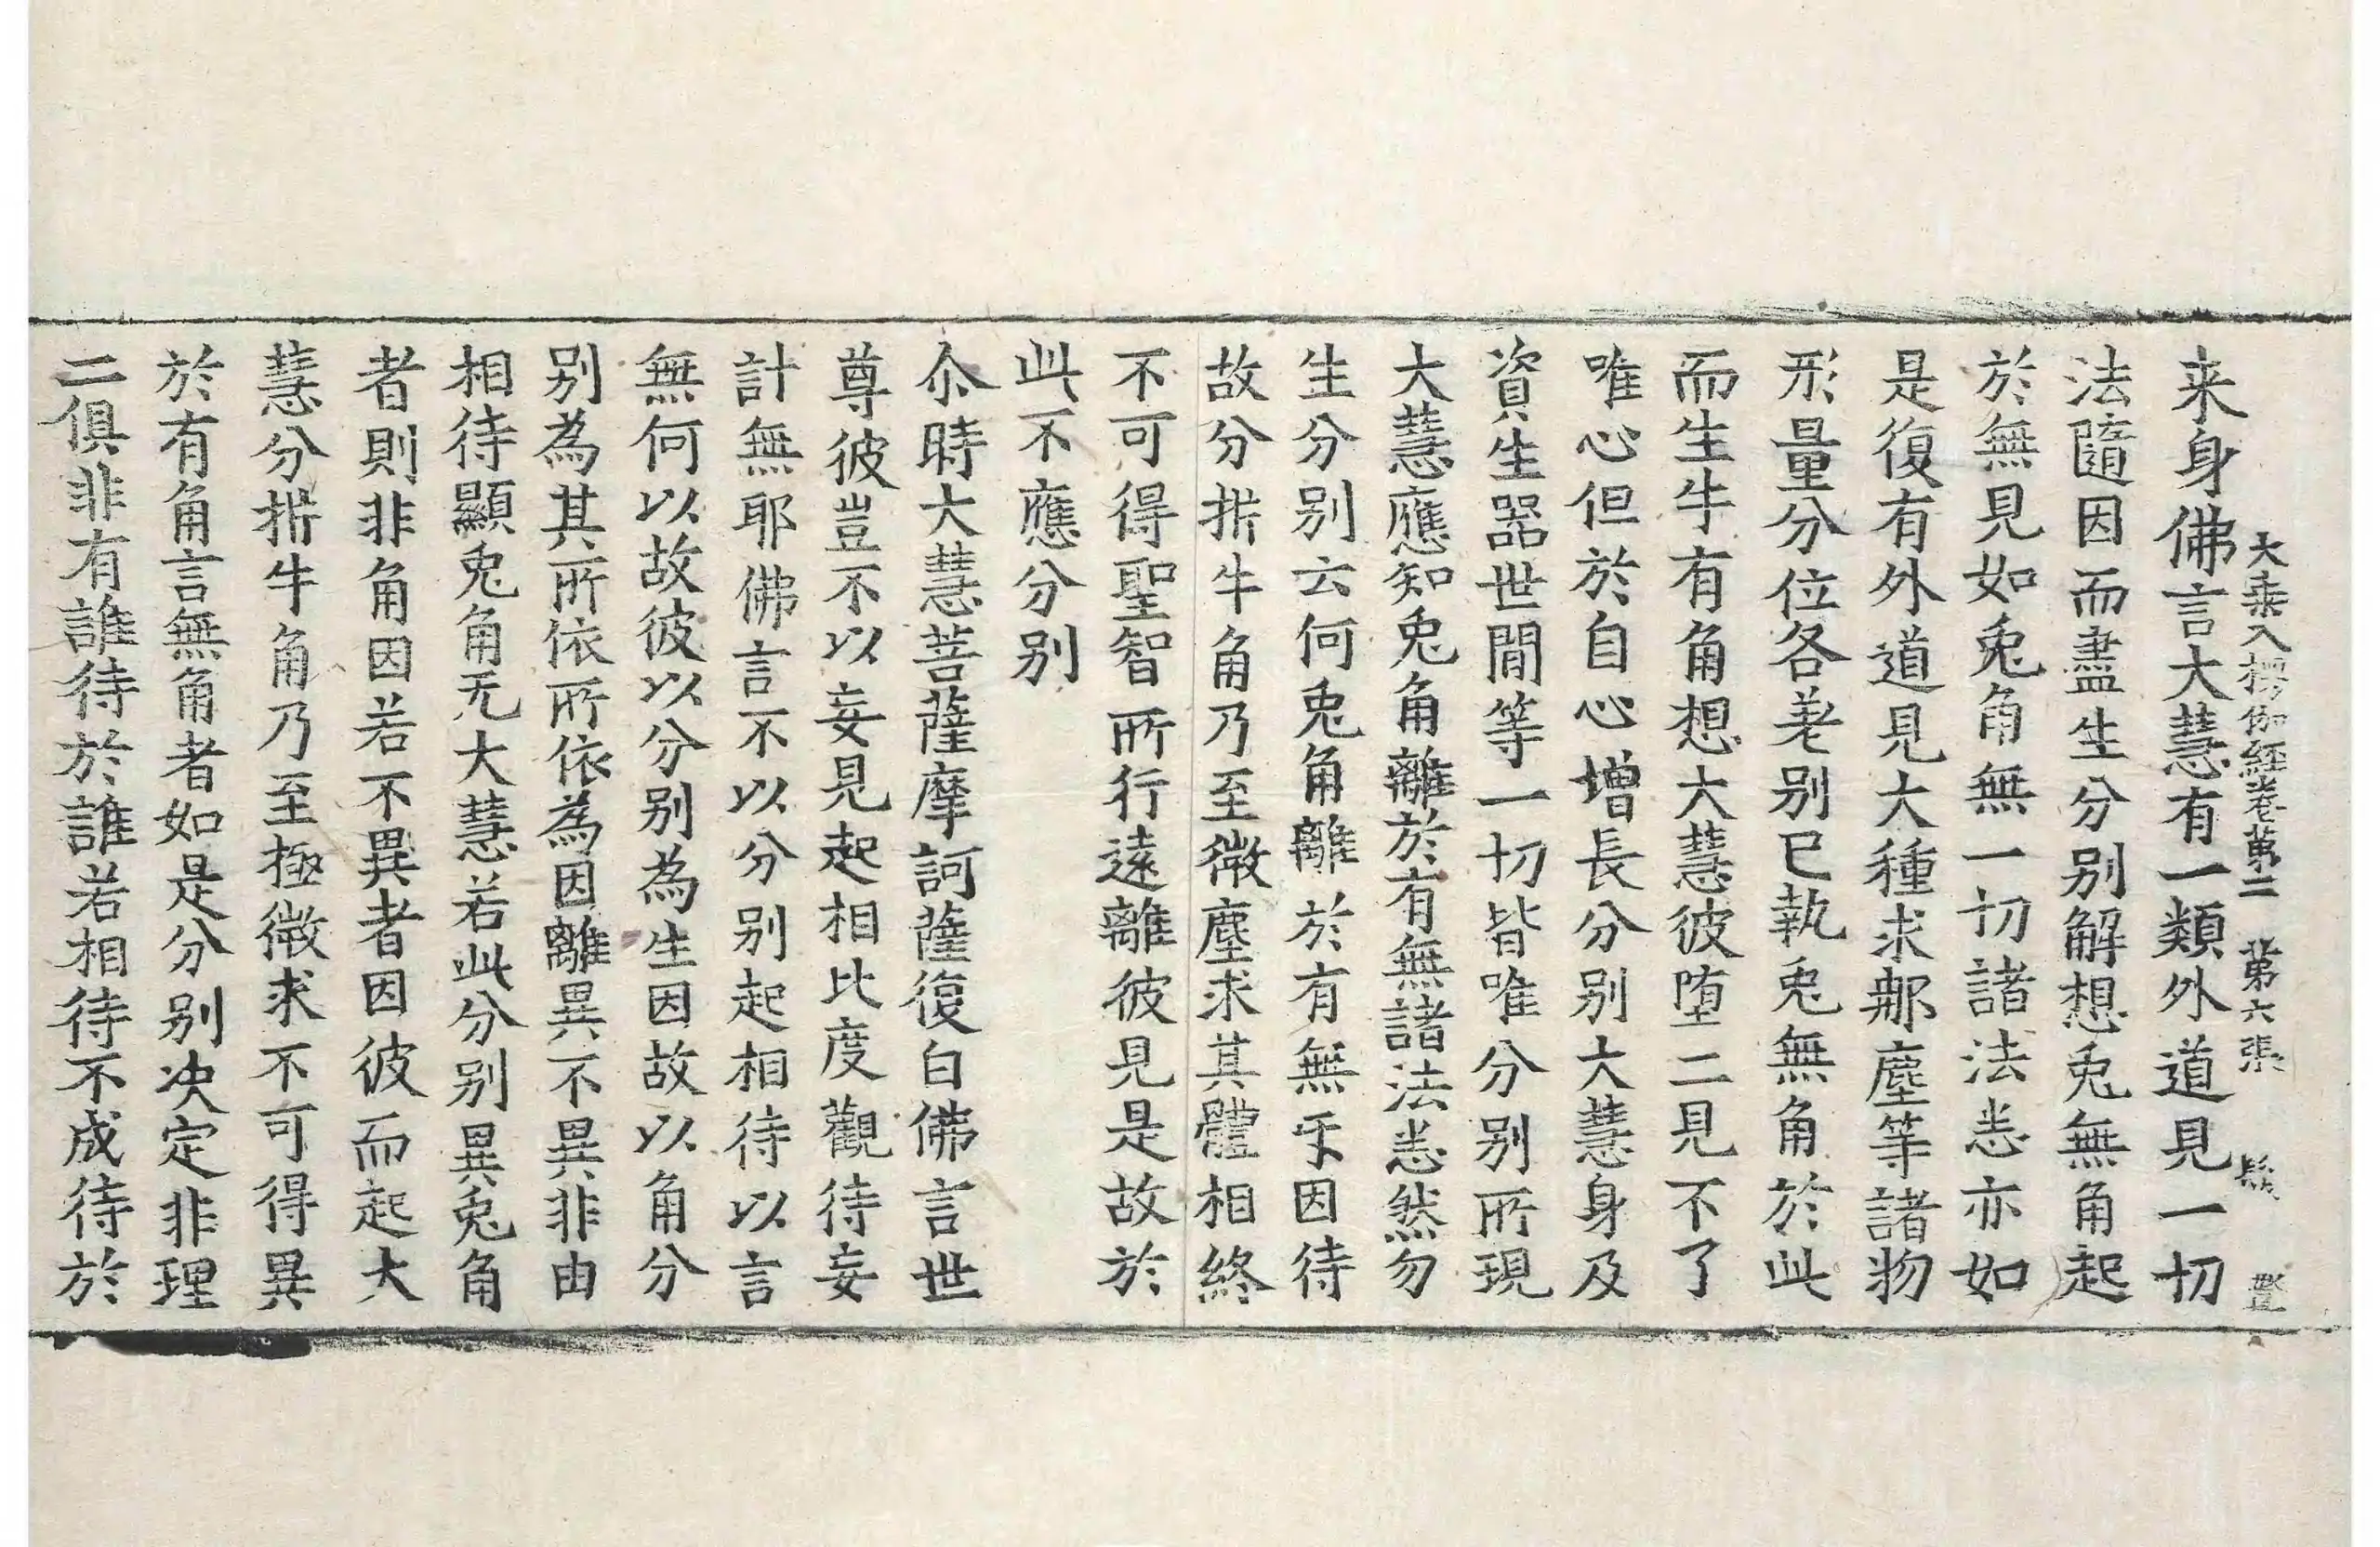 大乘入楞伽經卷第二　第六張　髮
来身佛言大慧有一類外道見一切
法隨因而盡生分别解想兎無角起
於無見如兎角無一切諸法悉亦如
是復有外道見大種求那塵等諸物
形量分位各差别已執兎無角於此
而生牛有角想大慧彼堕二見不了
唯心但於自心增長分别大慧身及
資生器世間等一切皆唯分别所現
大慧應知兎角離於有無諸法悉然勿
生分别云何兎角離於有無乎因待
故分析牛角乃至微塵求其體相終
不可得聖智所行遠離彼見是故於
此不應分别
尒時大慧菩薩摩訶薩復白佛言世
尊彼豈不以妄見起相比度觀待妄
計無耶佛言不以分别起相待以言
無何以故彼以分别為生因故以角分
别為其所依所依為因離異不異非由
相待顯兎角无大慧若此分别異兎角
者則非角因若不異者因彼而起大
慧分析牛角乃至極微求不可得異
於有角言無角者如是分别决定非理
二俱非有誰待於誰若相待不成待於